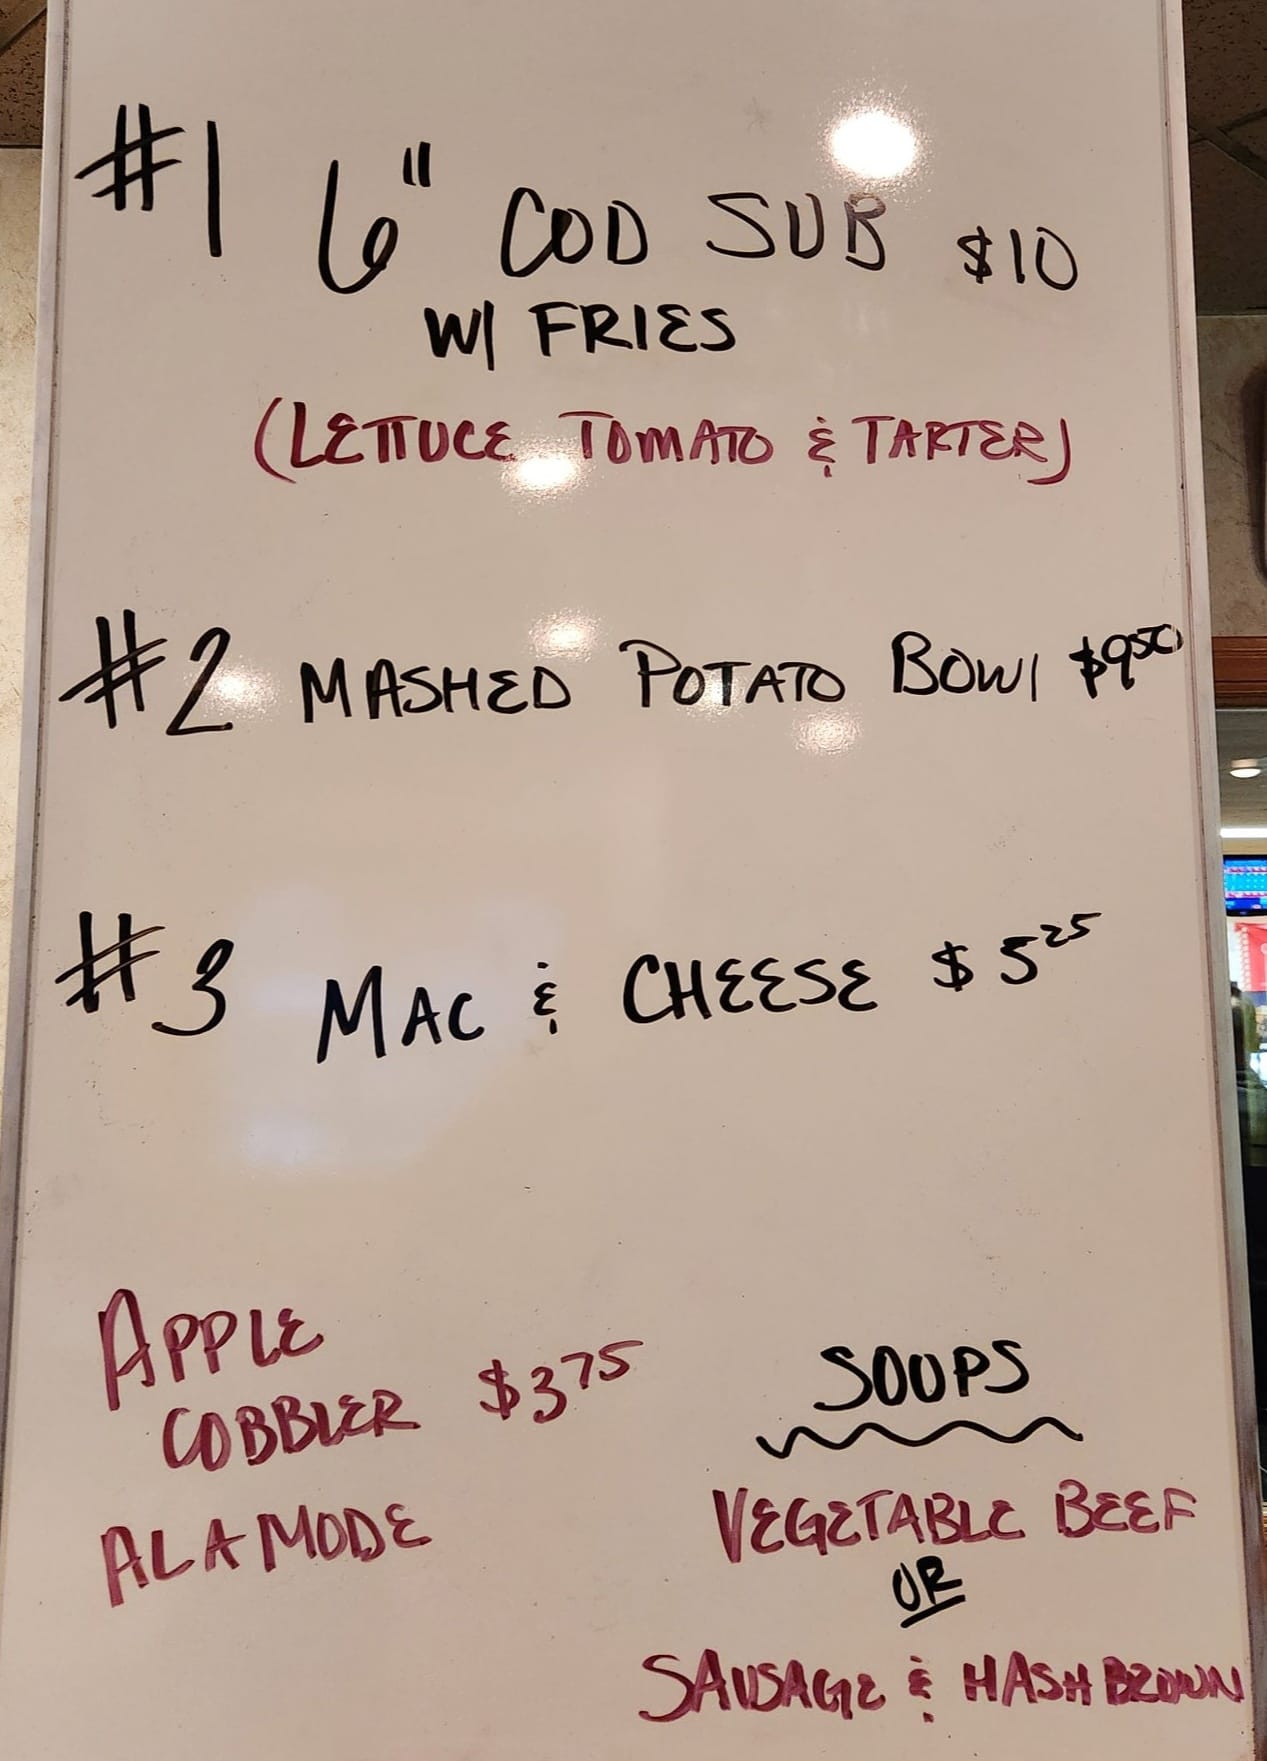 #1 6" COD SUB $10
W/ FRIES
(LETTUCE TOMATO & TARTER)
#2 MASHED POTATO BOWl $950
#3 MAC & CHEESE $525
APPLE
COBBLER $375
ALAMODE
SOUPS
VEGETABLE BEEF
OR
SAUSAGE & HASH BROWN